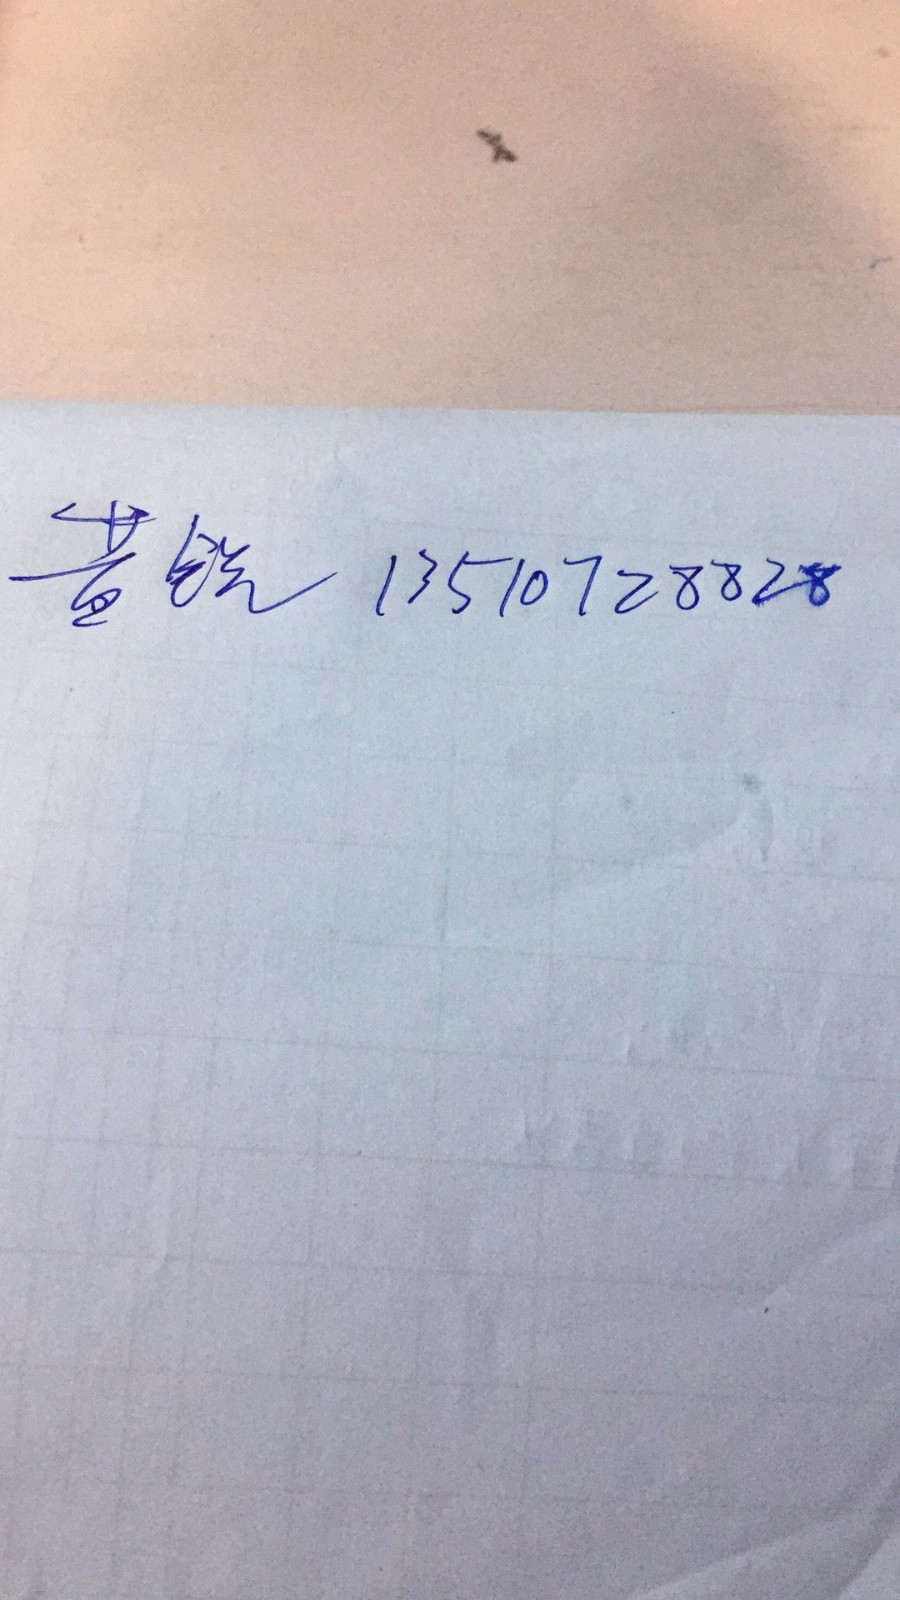 黄 13510728828